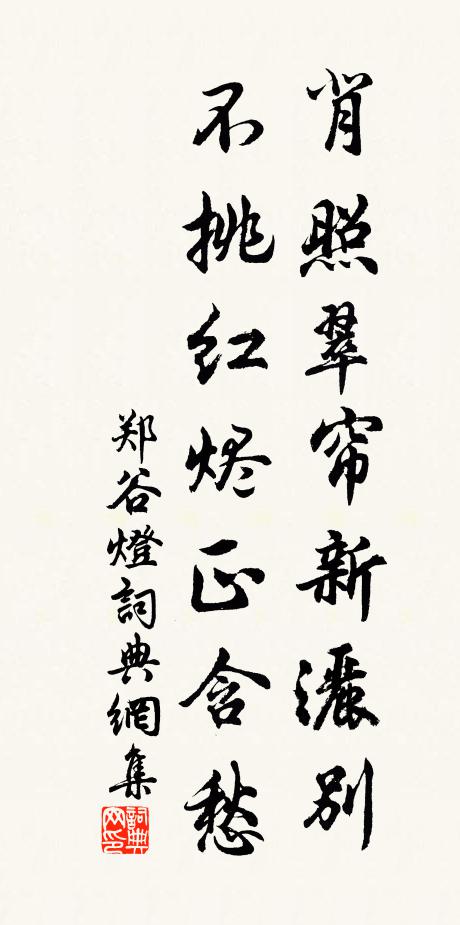 肖照翠帘新灑别
不挑红烬正含愁
郑谷燈詞典網集
詞典网印